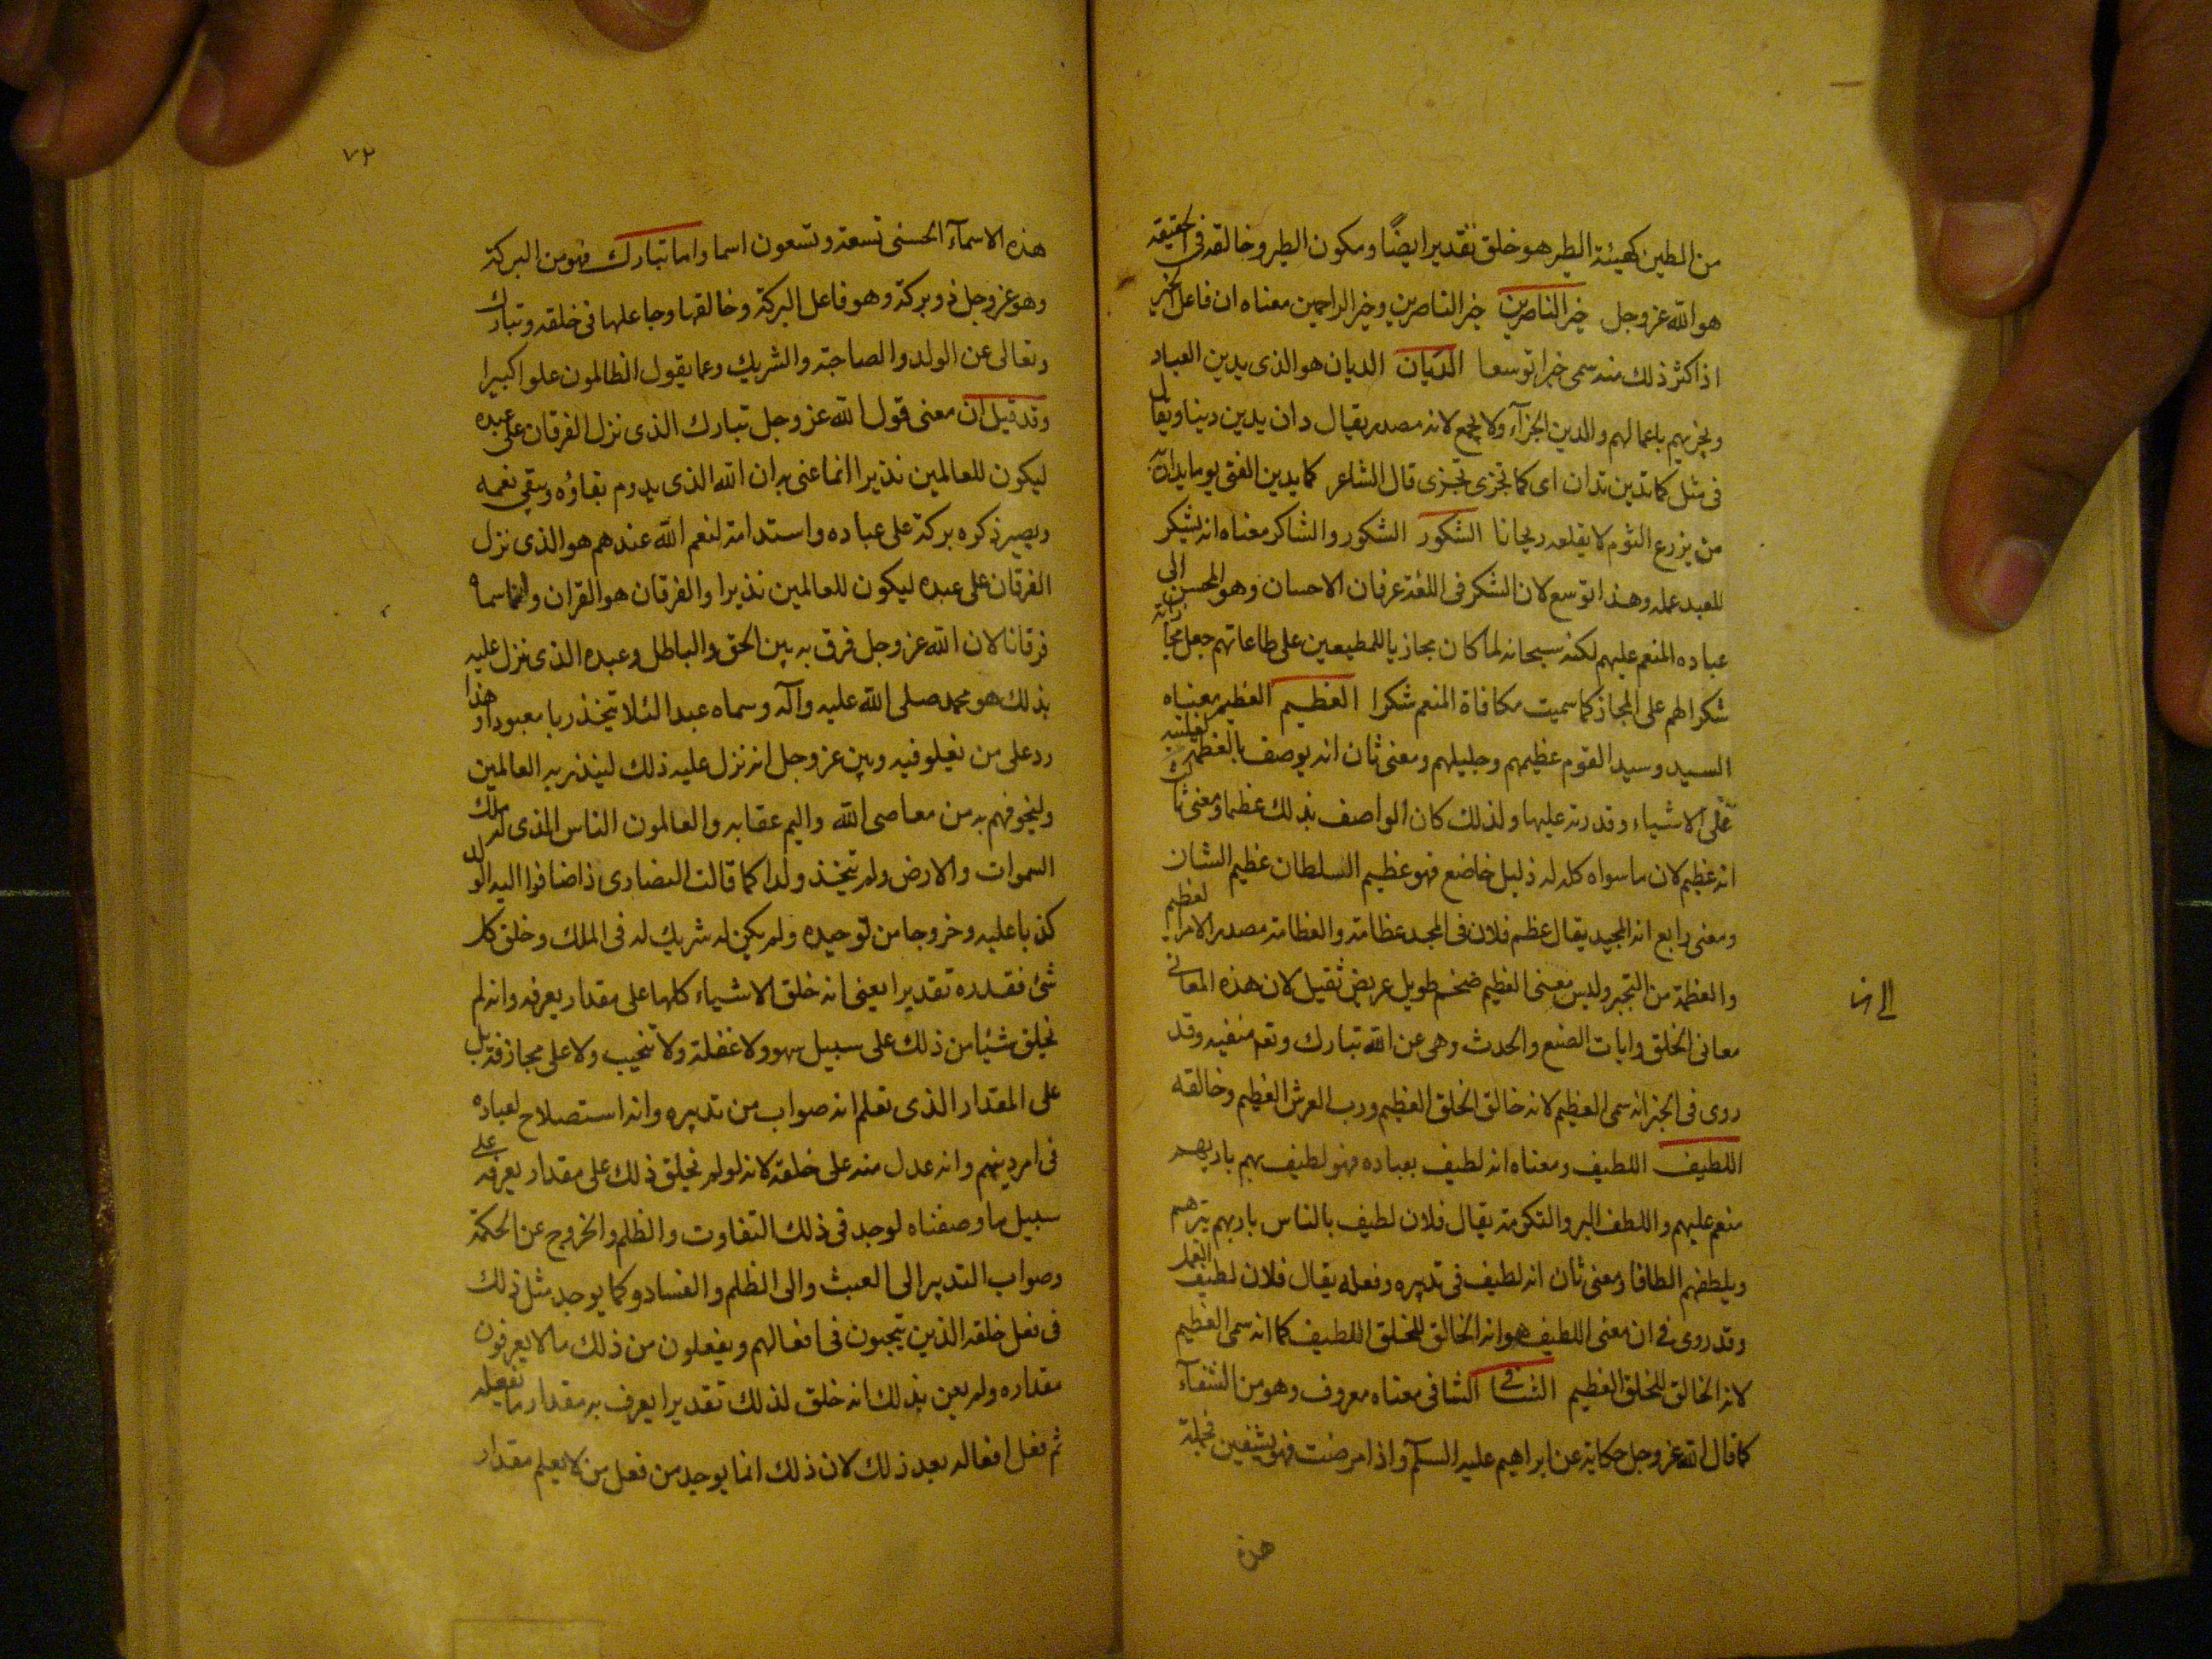 من الطين كهيئة الطير هو خلق تقدير ايضًا ومكون الطير وخالقه فى الحقيقة
هو الله عز وجل خير الناصرين خير الناصرين وخير الراحمين معناه ان فاعل الخير
اذا كثر ذلك منه سمى خيرا توسعا الديان الديان هو الذى يدين العباد
ويجزيهم باعمالهم والدين الجزآء ولا يجمع لانه مصدر يقال دان يدين دينا ويقال
فى مثل كما تدين تدان اى كما تجزى تجزى قال الشاعر كما يدين الفتى يوما يدان به
من يزرع الثوم لا يقلعه ريحانا الشكور الشكور والشاكر معناه انه يشكر
للعبد عمله وهذا توسع لان الشكر فى اللغة عرفان الاحسان وهو المحسن الى
عباده المنعم عليهم لكنه سبحانه لما كان مجازيا للمطيعين على طاعاتهم جعل مجازاته
شكرا لهم على المجاز كما سميت مكافاة المنعم شكرا العظيم العظيم معناه
السيد وسيد القوم عظيمهم وجليلهم ومعنى ثان انه يوصف بالعظمة لغلبته
على الاشياء وقدرته عليها ولذلك كان الواصف بذلك عظما ومعنى ثالث
انه عظيم لان ما سواه كله له ذليل خاضع فهو عظيم السلطان عظيم الشان
ومعنى رابع انه المجيد يقال عظم فلان فى المجد عظامة والعظامة مصدر الامر العظيم
والعظمة من التجبر وليس معنى العظيم ضخم طويل عريض ثقيل لان هذه المعانى
معانى الخلق وايات الصنع والحدث وهى عن الله تبارك وتعم منفيه وقد
روى فى الخبر انه سمى العظيم لانه خالق الخلق العظيم ورب العرش العظيم وخالقه
اللطيف اللطيف ومعناه انه لطيف بعباده فهو لطيف بهم بار بهم
منعم عليهم واللطف البر والتكرمة يقال فلان لطيف بالناس بار بهم يبرهم
ويلطفهم الطافا ومعنى ثان انه لطيف فى تدبيره وفعله يقال فلان لطيف العمل
وقد روى فى ان معنى اللطيف هو انه الخالق للخلق اللطيف كما انه سمى العظيم
لانه الخالق للخلق العظيم الشافى الشافى معناه معروف وهو من الشفآء
كما قال الله عز وجل حكاية عن ابراهيم عليه السلم واذا مرضت فهو يشفين فجملة
هذه
٧٢
هذه الاسمآء الحسنى تسعة وتسعون اسما واما تبارك فهو من البركة
وهو عز وجل ذو بركة وهو فاعل البركة وخالقها وجاعلها فى خلقه وتبارك
وتعالى عن الولد والصاحبة والشريك وعما يقول الظالمون علوا كبيرا
وقد قيل ان معنى قول الله عز وجل تبارك الذى نزل الفرقان على عبده
ليكون للعالمين نذيرا انما عنى به ان الله الذى يدوم بقاؤه ويبقى نعمه
ويصير ذكره بركة على عباده واستدامة لنعم الله عندهم هو الذى نزل
الفرقان على عبده ليكون للعالمين نذيرا والفرقان هو القران وانما سماه
فرقانا لان الله عز وجل فرق به بين الحق والباطل وعبده الذى نزل عليه
بذلك هو محمد صلى الله عليه وآله وسماه عبدا لئلا يتخذ ربا معبودا وهذا
رد على من يغلو فيه وبين عز وجل انه نزل عليه ذلك لينذر به العالمين
وليخوفهم به من معاصى الله واليم عقابه والعالمون الناس الذى له ملك
السموات والارض ولم يتخذ ولدا كما قالت النصارى اذ اضافوا اليه الولد
كذبا عليه وخروجا من توحيده ولم يكن له شريك له فى الملك وخلق كل
شئ فقدره تقديرا يعنى انه خلق الاشياء كلها على مقدار يعرفه وانه لم
يخلق شيئا من ذلك على سبيل سهو ولا غفلة ولا تنحيب ولا على مجازفة بل
على المقدار الذى تعلم انه صواب من تدبيره وانه استصلاح لعباده
فى امر دينهم وانه عدل منه على خلقه لانه لو لم يخلق ذلك على مقدار يعرفه على
سبيل ما وصفناه لوجد فى ذلك التفاوت والظلم والخروج عن الحكمة
وصواب التدبير الى العبث والى الظلم والفساد وكما يوجد مثل ذلك
فى فعل خلقه الذين يتحبون فى افعالهم ويفعلون من ذلك ما لا يعرفون
مقداره ولم يعن بذلك انه خلق لذلك تقديرا يعرف به مقدار ما يفعله
ثم فعل افعاله بعد ذلك لان ذلك انما يوجد من فعل من لا يعلم مقدار